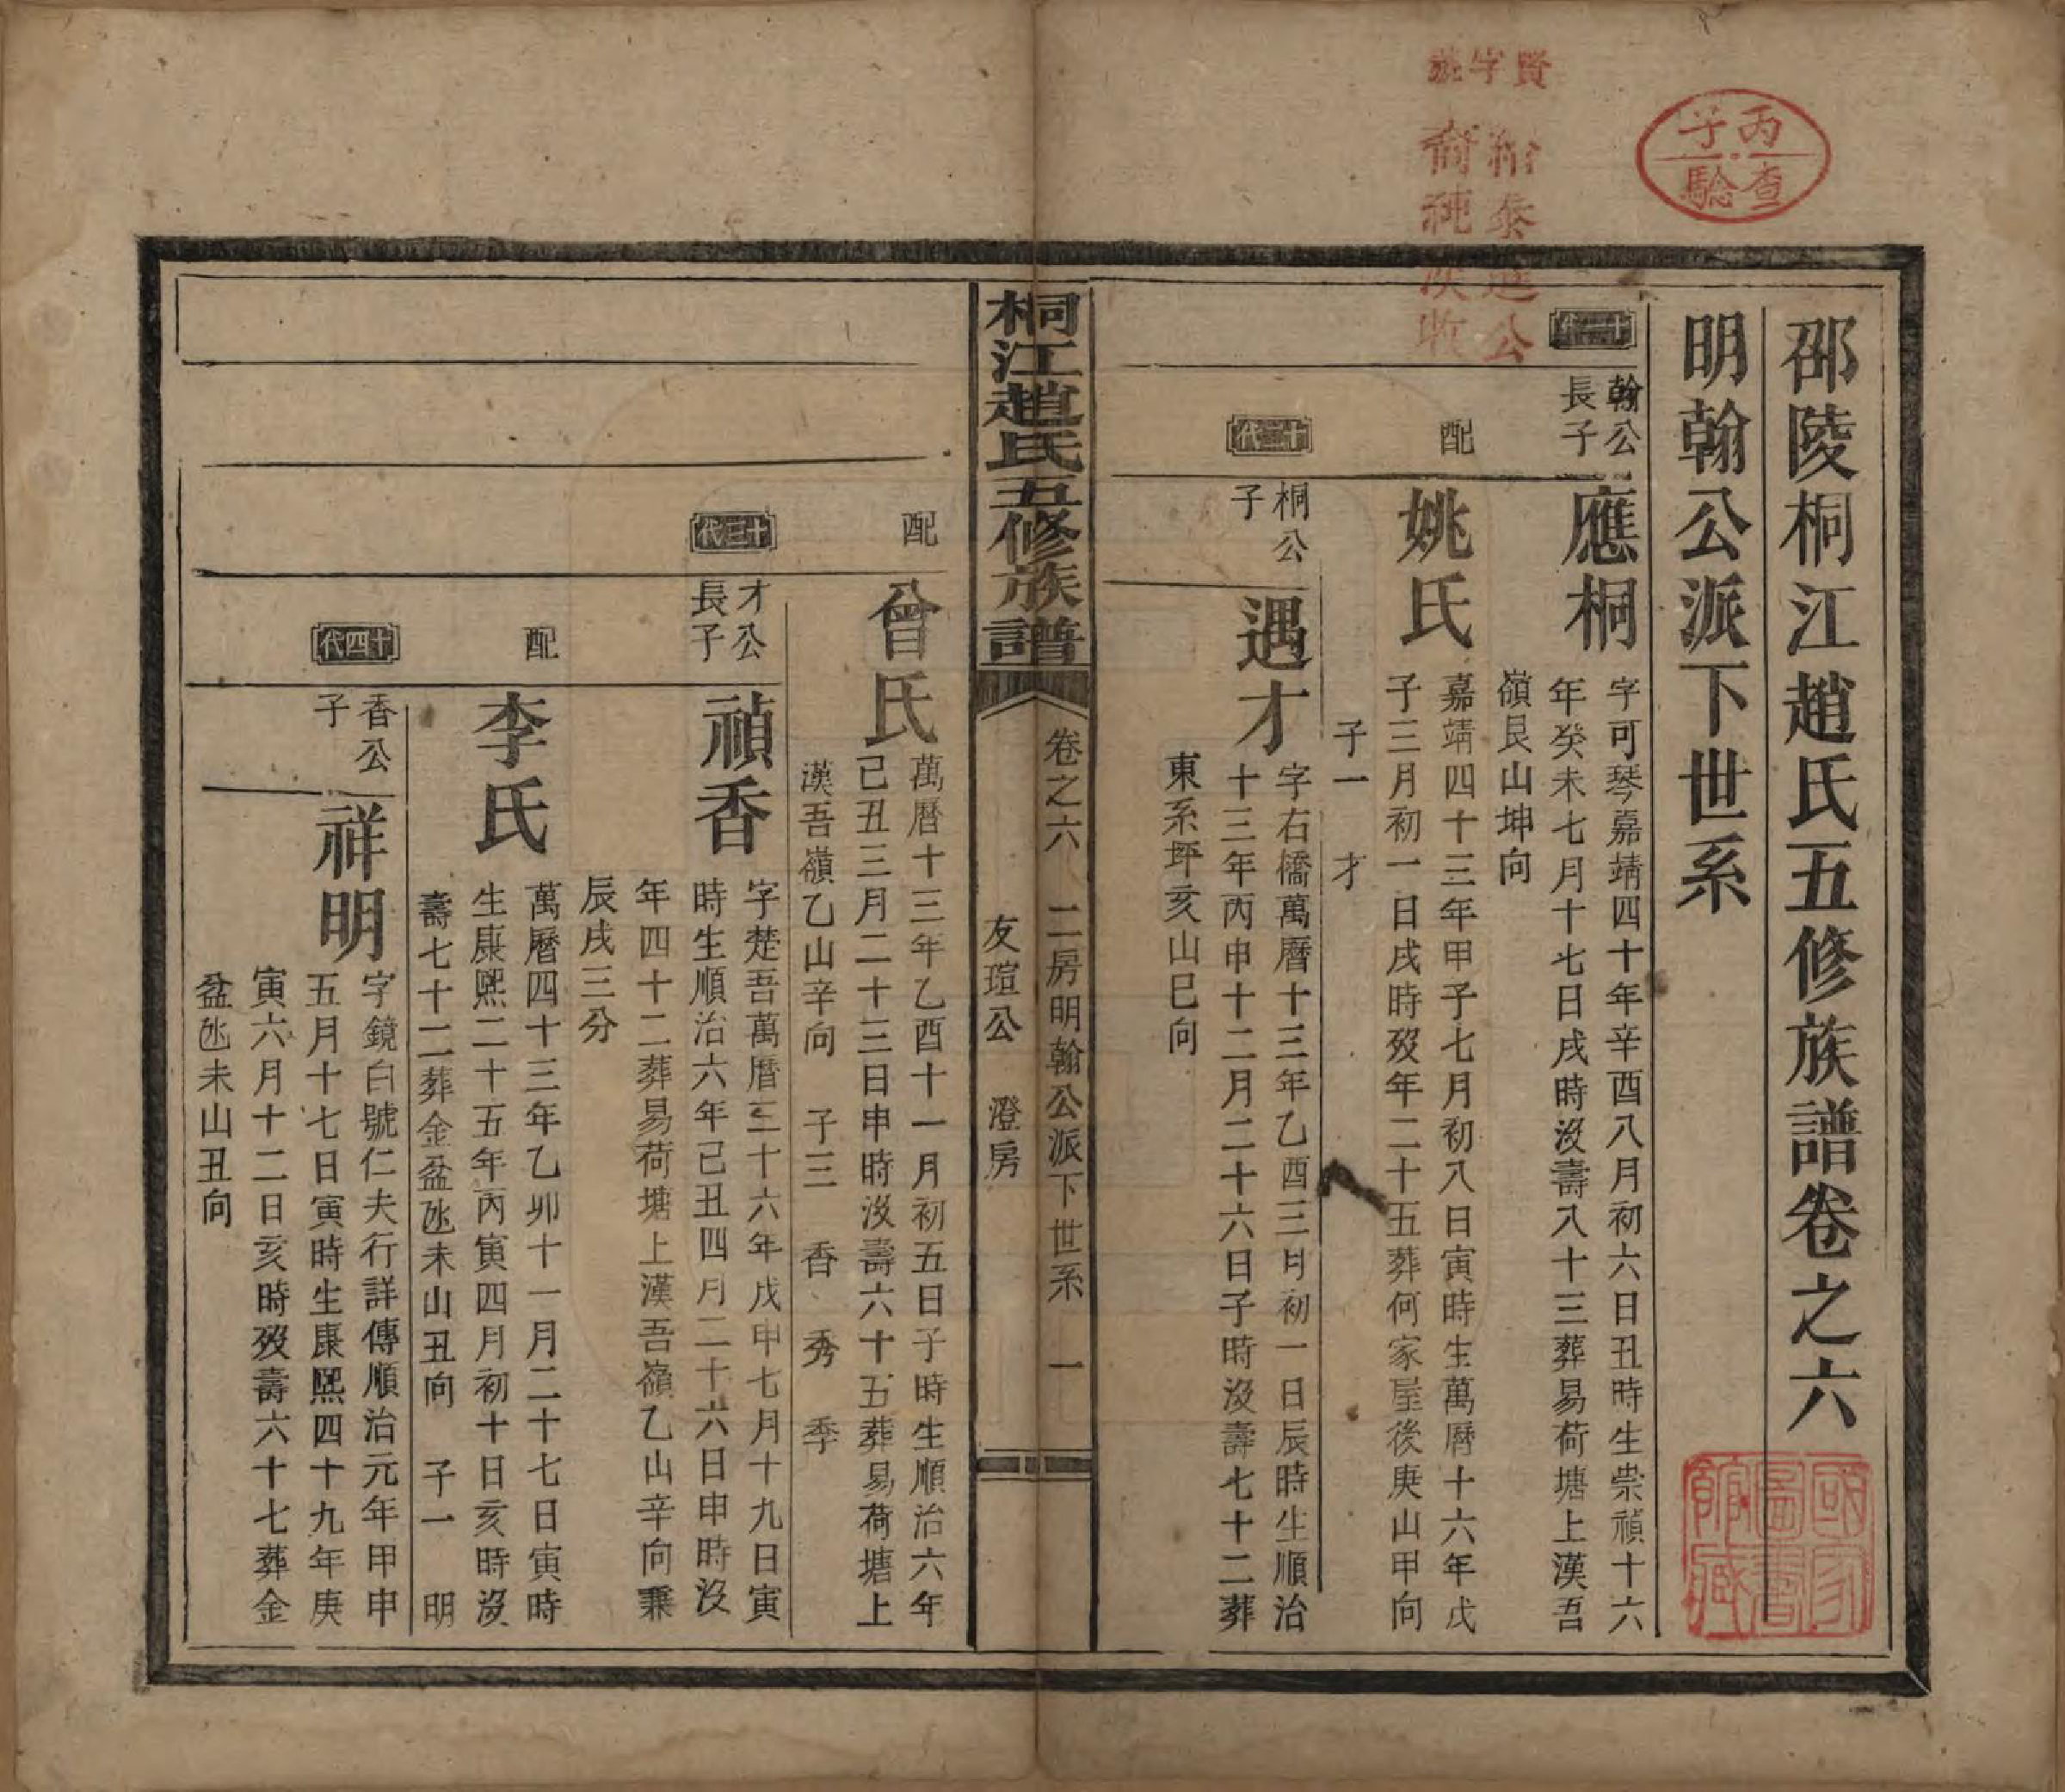 邵陵桐江趙氏五修族譜卷之六
明翰公派下世系
十一代
翰公
長子
應桐
字可琴嘉靖四十年辛酉八月初六日丑時生崇禎十六
年癸未七月十七日戌時沒壽八十三葬易荷塘上漢吾
嶺艮山坤向
配
姚氏
嘉靖四十三年甲子七月初八日寅時生萬曆十六年戊
子三月初一日戌時歿年二十五葬何家屋後庚山甲向
子一 才
十二代
桐公
子
遇才
字右橋萬曆十三年乙酉三月初一日辰時生順治
十三年丙申十二月二十六日子時沒壽七十二葬
東系坪亥山巳向
桐江趙氏五修族譜
卷之六 二房明翰公派下世系 一
友瑄公 澄房
配
曾氏
萬曆十三年乙酉十一月初五日子時生順治六年
己丑三月二十三日申時沒壽六十五葬易荷塘上
漢吾嶺乙山辛向 子三 香 秀 季
十三代
才公
長子
禎香
字楚吾萬曆三十六年戊申七月十九日寅
時生順治六年己丑四月二十六日申時沒
年四十二葬易荷塘上漢吾嶺乙山辛向兼
辰戌三分
配
李氏
萬曆四十三年乙卯十一月二十七日寅時
生康熙二十五年丙寅四月初十日亥時沒
壽七十二葬金盆氹未山丑向 子一 明
十四代
香公
子
祥明
字鏡白號仁夫行詳傳順治元年甲申
五月十七日寅時生康熙四十九年庚
寅六月十二日亥時歿壽六十七葬金
盆氹未山丑向
丙子
查驗
賢字號
泰進公
裔純
收
國家圖書館藏